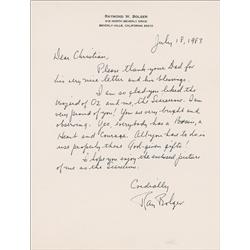 RAYMOND W. BOLGER
618 NORTH BEVERLY DRIVE
BEVERLY HILLS, CALIFORNIA 90210
July 18, 1983
Dear Christian,
Please thank your Dad for
his very nice letter and his blessings.
I am so glad you liked the
Wizard of Oz and me, the Scarecrow. I am
very proud of you! You are very bright and
observing. Yes, everybody has a Brain, a
Heart and Courage. All you have to do is
use properly these God-given gifts!
I hope you enjoy the enclosed picture
of me as the Scarecrow.
Cordially
Ray Bolger